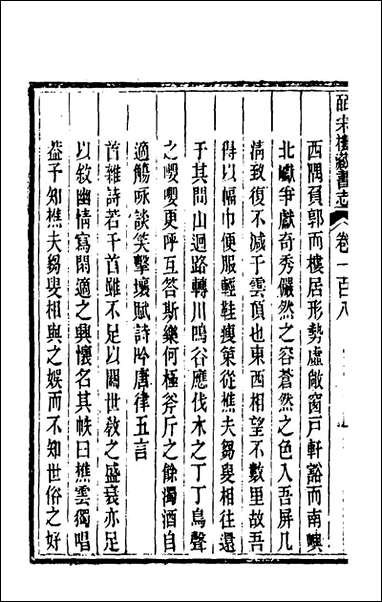 西隅負郭而樓居形勢虛敞窗戶軒豁而南㠗
北巘爭獻奇秀儼然之容蒼然之色入吾屏几
清致復不減于雲頂也東西相望不數里故吾
得以幅巾便服輕鞋瘦策從樵夫芻叟相往還
于其間山迴路轉川鳴谷應伐木之丁丁鳥聲
之嚶嚶更呼互答斯樂何極斧斤之餘濁酒自
適觴咏談笑擊壤賦詩吟唐律五言
首雜詩若干首雖不足以關世敎之盛衰亦足
以敘幽情寫閒適之興懷名其帙曰樵雲獨唱
葢予知樵夫芻叟相與之娛而不知世俗之好
皕宋樓藏書志 卷一百八